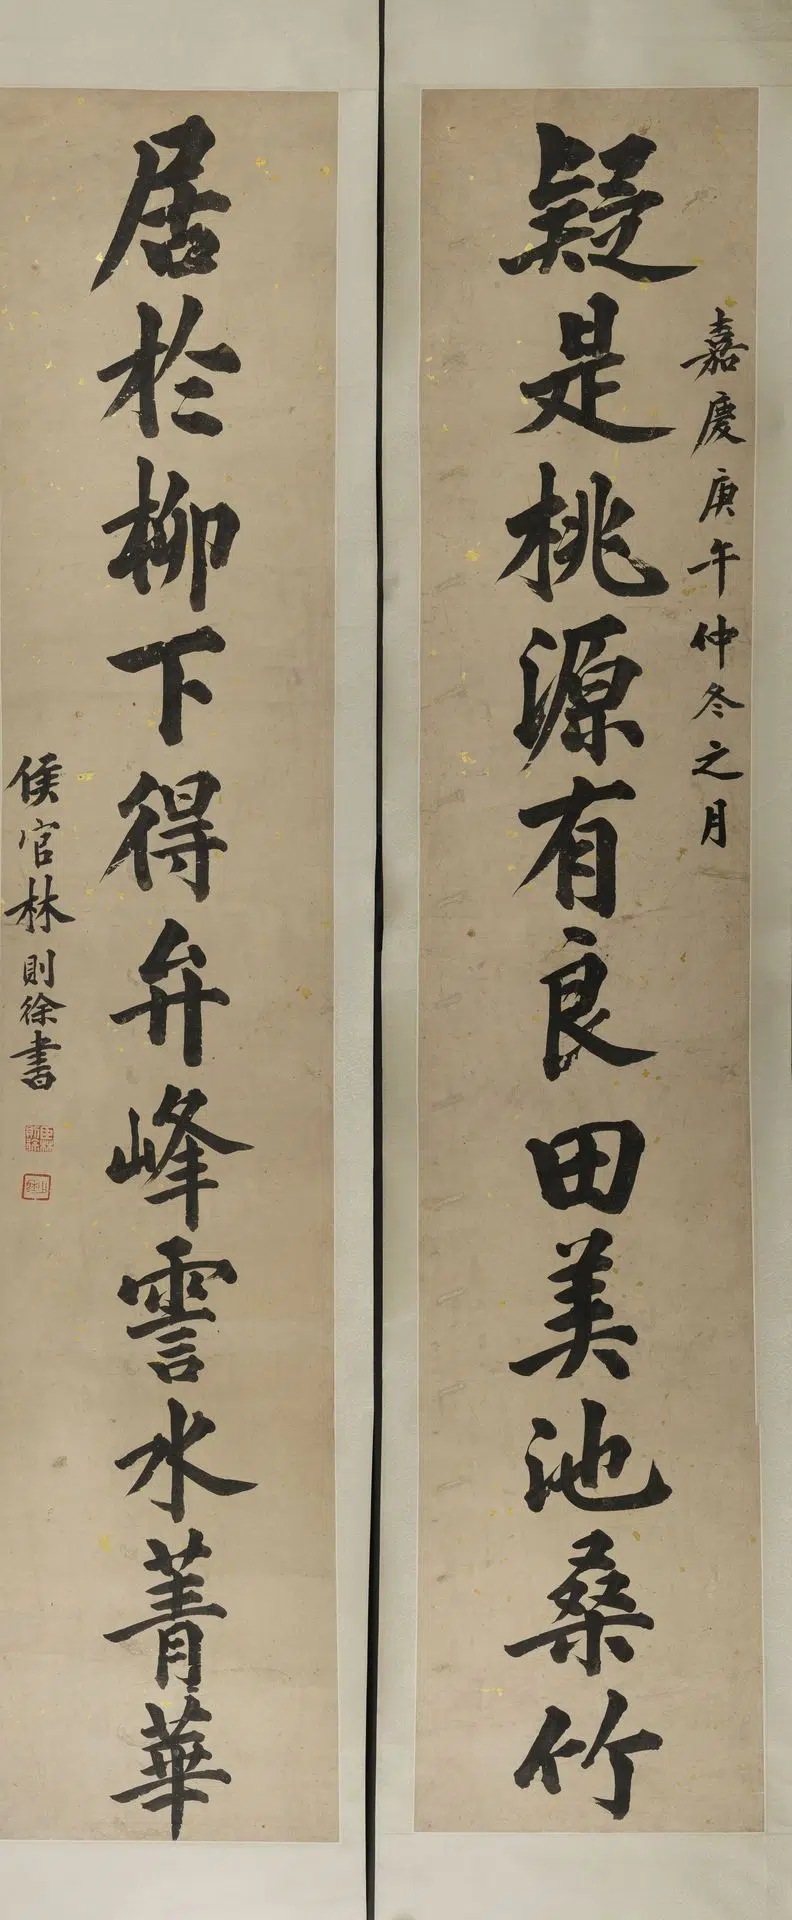 嘉慶庚午仲冬之月
疑是桃源有良田美池桑竹
居於柳下得弁峰霅水菁華
侯官林則徐書